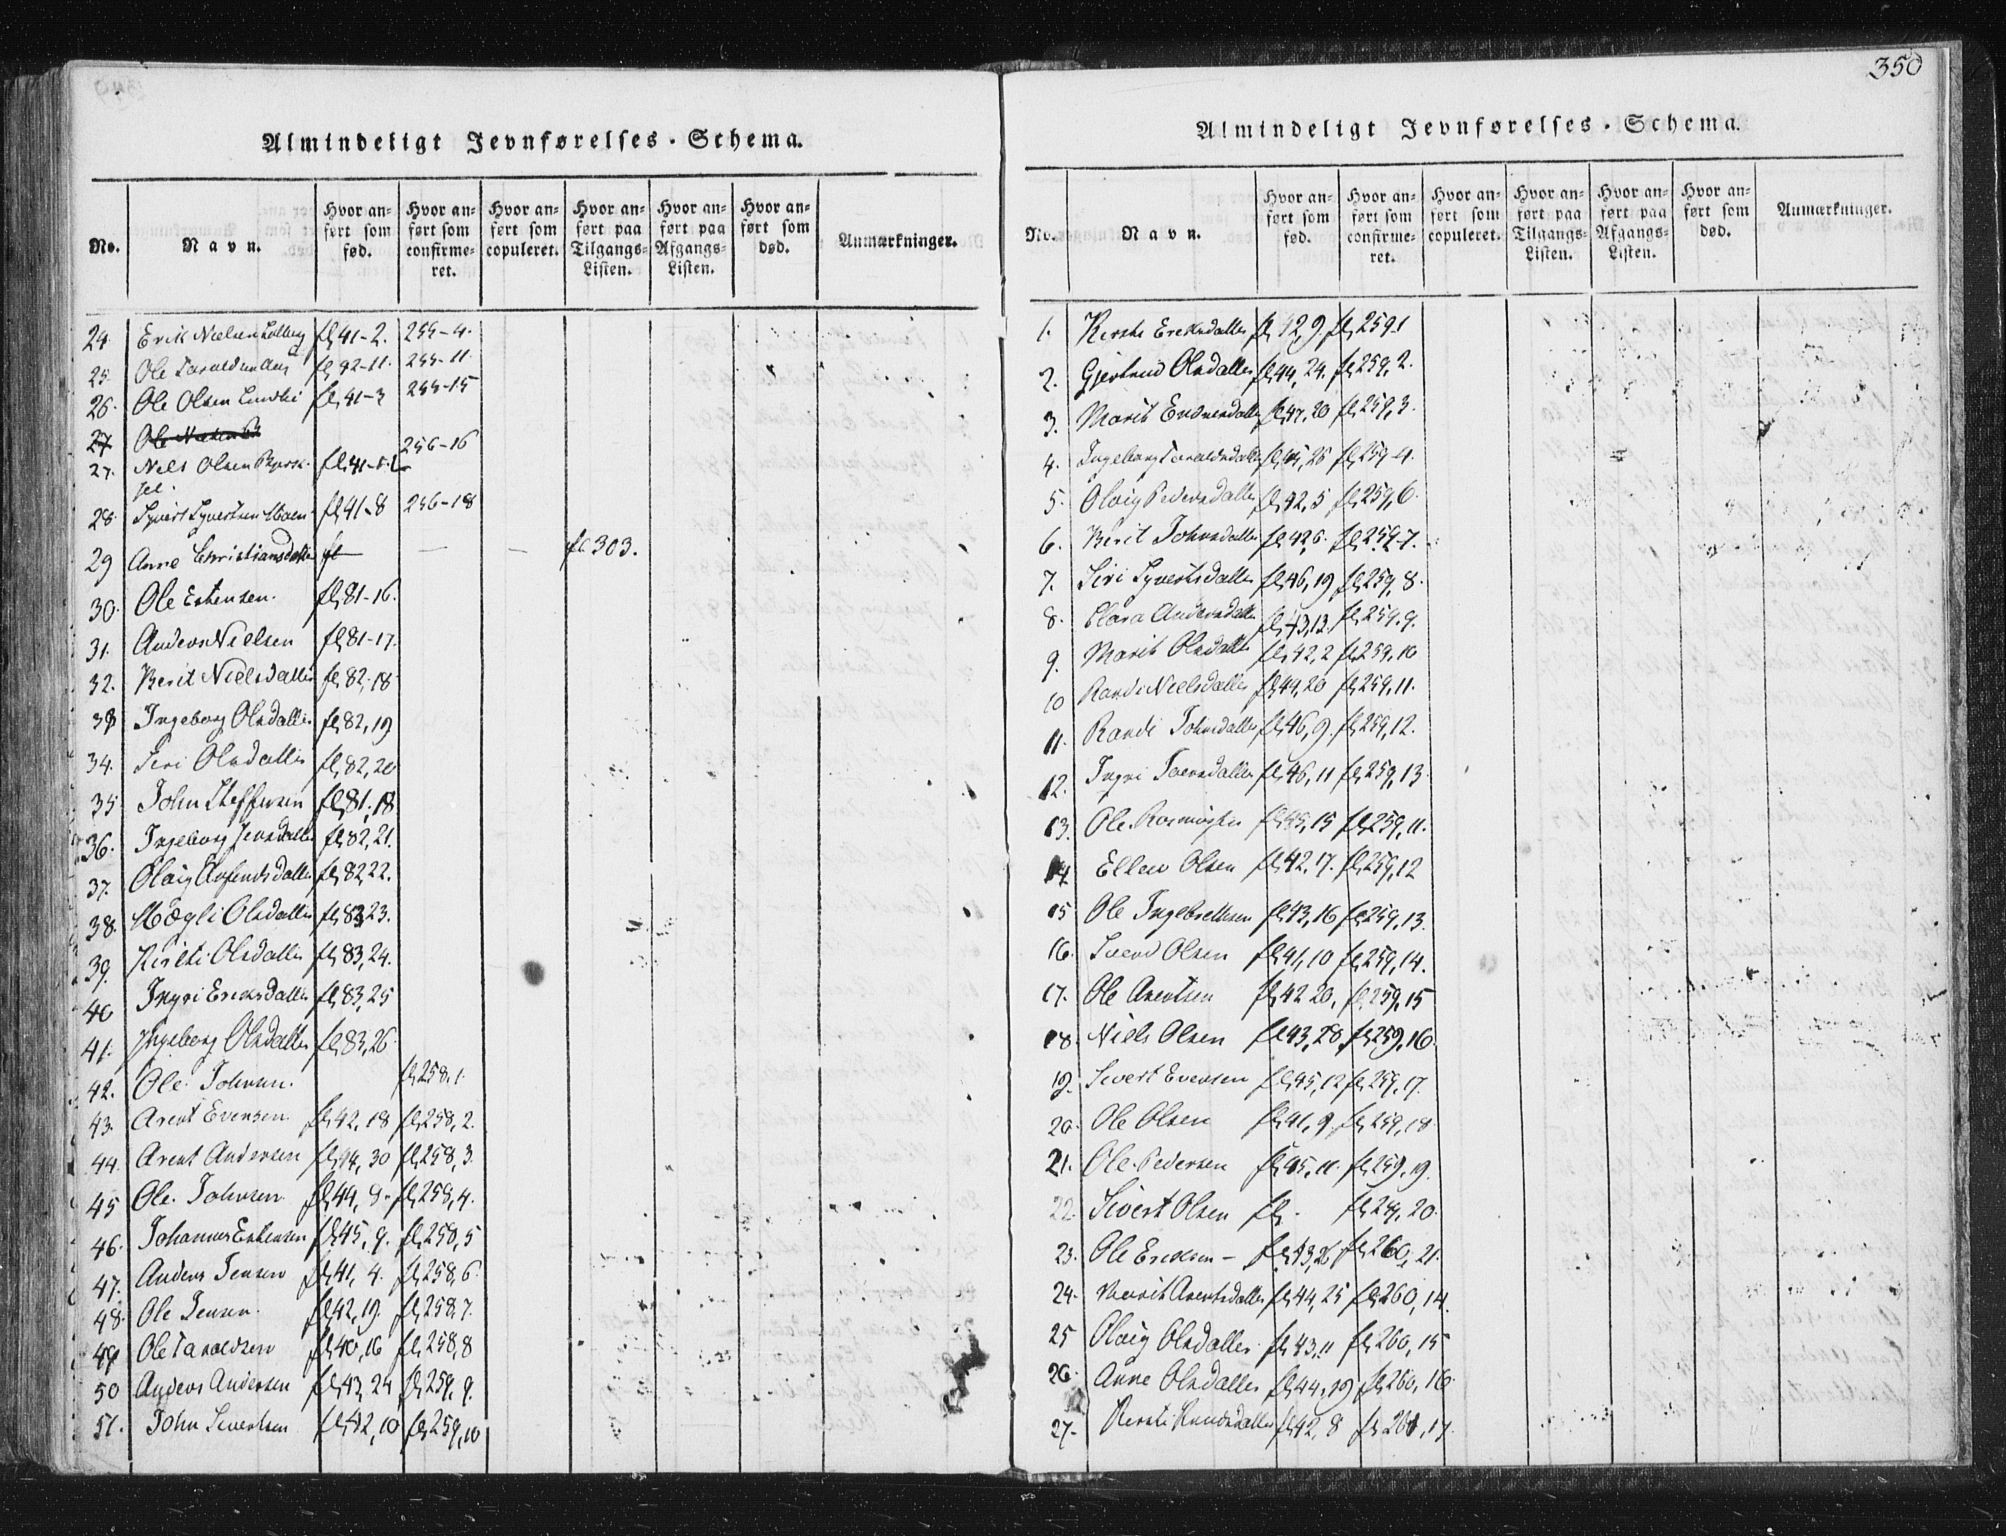 350
Almindeligt Jevnførelses-Schema.
No. Navn. Hvor anført som fød. Hvor anført som confirmeret. Hvor anført som copuleret. Hvor anført paa Tilgangs-Listen. Hvor anført paa Afgangs-Listen. Hvor anført som død. Anmærkninger.
24. Erik Nielsen fl 41-2. 255-4.
25. Ole 255-11.
26. Ole Olsen fl 41-3 255-15
27 Ole
27. Nels Olsen 256-16
28. fl 41-8 256-18
29 Anne Christiansdatter fl — — — fl 303.
30. Ole Estensen. fl 81-16.
31. Anders Nielsen fl 81-17.
32. Berit Nielsdatter fl 82-18
33 Ingeborg Olsdatter fl 82,19
34. Siri Olsdatter fl 82,20
35 John Steffensen fl 81,18
36. Ingeborg Jensdatter fl 82,21.
37. Olaig fl 82,22.
38. Magli Olsdatter fl 83,23.
39. Kirsti Olsdatter fl 83,24.
40 Ingri Eriksdatter fl 83,25
41. Ingeborg Olsdatter fl 83,26
42. Ole Johnsen. fl 258.1.
43. Arent Evensen fl 42,18 fl 258,2.
44. Arent Andersen fl 44,30 fl 258,3.
45 Ole Johnsen fl 44,8 fl 258,4.
46. Johannes Estensen fl 45,9. fl 258,5
47. Anders Jensen fl 41,4. fl 258,6
48. Ole Jensen. fl 42,19. fl 258,7.
49 Ole Taraldsen fl 40,16 fl 258,8
50 Anders Andersen fl 43,24 fl 259,9.
51. John Sivertsen fl 42,10 fl 259,10
Almindeligt Jevnførelses-Schema.
No. Navn. Hvor anført som fød. Hvor anført som confirmeret. Hvor anført som copuleret. Hvor anført paa Tilgangs-Listen. Hvor anført paa Afgangs-Listen. Hvor anført som død. Anmærkninger.
1. Kirsti Ericksdatter fl 42,9 fl 259.1
2. Gjertrud Olsdatter fl 44,24. fl 259,2.
3. Marit fl 47,20 fl 259,3.
4. Ingeborg Taraldsdatter fl 45,26 fl 259-4.
5. Olaig Pedersdatter fl 42,5 fl 259,6.
6. Berit Johnsdatter fl 42,6. fl 259-7.
7. Siri Syvertsdatter fl 46,19 fl 259,8.
8. Andersdatter fl 43,13. fl 259,9.
9. Marit Olsdatter fl 42,2 fl 259,10
10 Randi Nielsdatter fl 44,20 fl 259,11.
11. Randi Johnsdatter fl 46,9. fl 259,12.
12. Ingri fl 46,11 fl 259,13.
13. Ole fl 45,15 fl 259,11.
14 Ellen Olsen fl 42,17. fl 259,12
15 Ole Ingebrettsen fl 43,16 fl 259,13.
16. Svend Olsen fl 41,10 fl 259,14.
17. Ole Arentsen fl 42 20, fl 259,15
18. Niels Olsen fl 43,28 fl 259,16.
19. Sivert Evensen fl 45,12 fl 259,17.
20. Ole Olsen fl 41,9 fl 259,18
21. Ole Pedersen fl 45,11. fl 259,19.
22. Sivert Olsen fl. fl 259,20.
23. Ole Eriksen - fl 43,26 fl 260,21.
24. Marit Arentsdatter fl 44,25 fl 260,14.
25 Olaig Olsdatter fl 43,11 fl 260,15
26. Anne Olsdatter fl 44,19 fl 260,16.
27. Kersti Knudsdatter fl 42,8 fl 261,17.